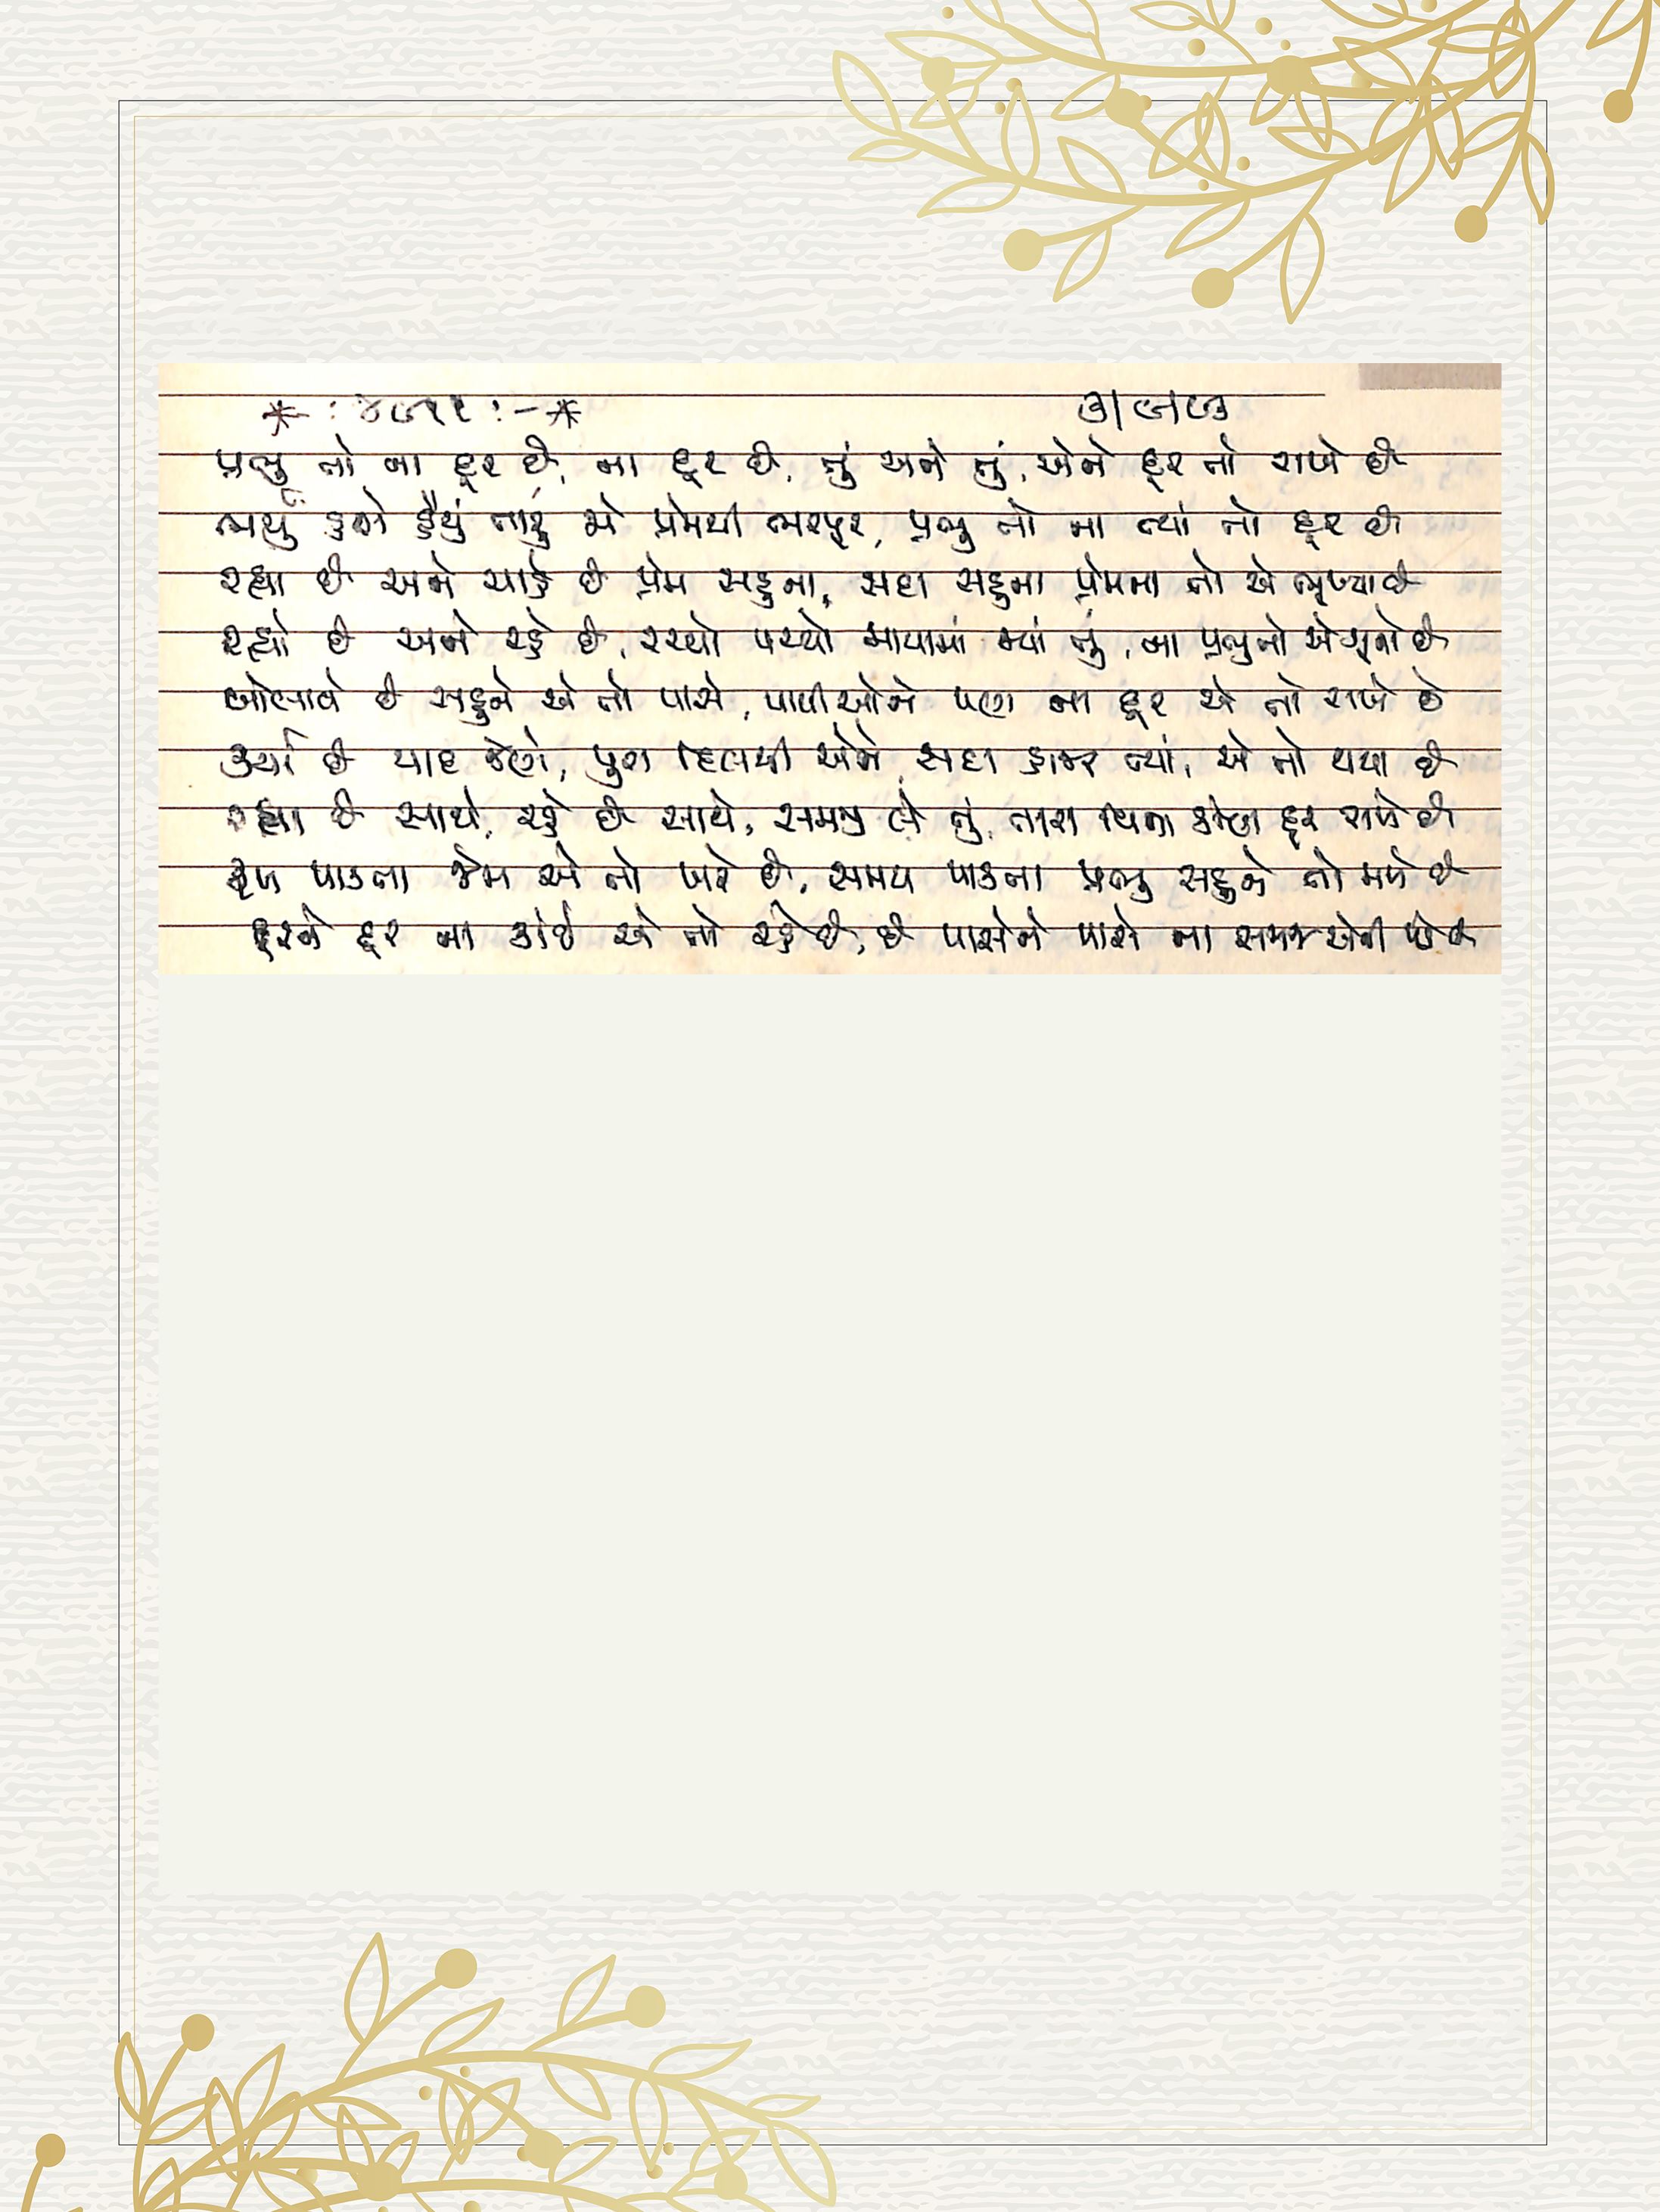 પ્રભુ તો ના દૂર છે, ના દૂર છે, તું અને તું, એને દૂર તો રાખે છે
ભર્યું હશે હૈયું તારું જો પ્રેમથી ભરપૂર, પ્રભુ તો ના ત્યાં તો દૂર છે
રહ્યા છે અને ચાહે છે પ્રેમ સહુના, સદા સહુના પ્રેમના તો એ ભૂખ્યા છે
રહ્યો છે અને રહે છે, રચ્યો પચ્યો માયામાં જ્યાં તું, ના પ્રભુનો એ ગુનો છે
બોલાવે છે સહુને એ તો પાસે, પાપીઓને પણ ના દૂર એ તો રાખે છે
કર્યા છે યાદ જેણે, પુરા દિલથી એને, સદા હાજર ત્યાં, એ તો થયા છે
રહ્યા છે સાથે, રહે છે સાથે, સમજી લે તું, તારા વિના કોણ દૂર રાખે છે
ફળ પાકતા જેમ એ તો ખરે છે, સમય પાકતા પ્રભુ સહુને તો મળે છે
દૂરને દૂર ના કાંઈ એ તો રહે છે, છે પાસેને પાસે ના સમજ એની પડે છે